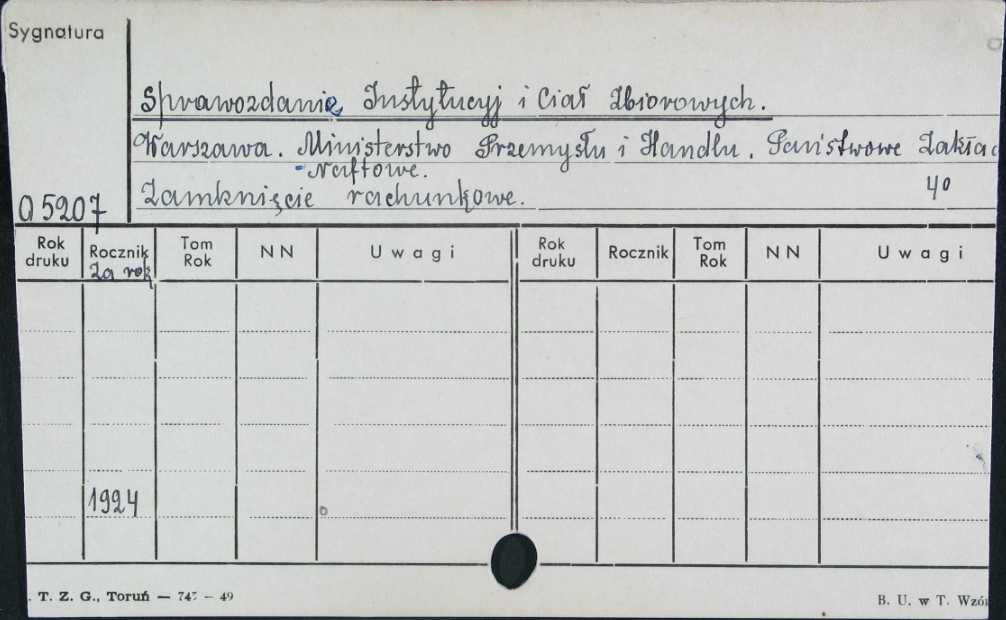 Sygnatura
Sprawozdanie Instytucyj i Ciał Zbiorowych.
Warszawa. Ministerstwo Przemysłu i Handlu. Państwowe Zakład
- Naftowe.
Zamknięcie rachunkowe. 4°
05207
Rok druku Rocznik Tom Rok NN Uwagi Rok druku Rocznik Tom Rok NN Uwagi
Za rok
1924
. T. Z. G., Toruń — 747 — 49 B. U. w T. Wzór